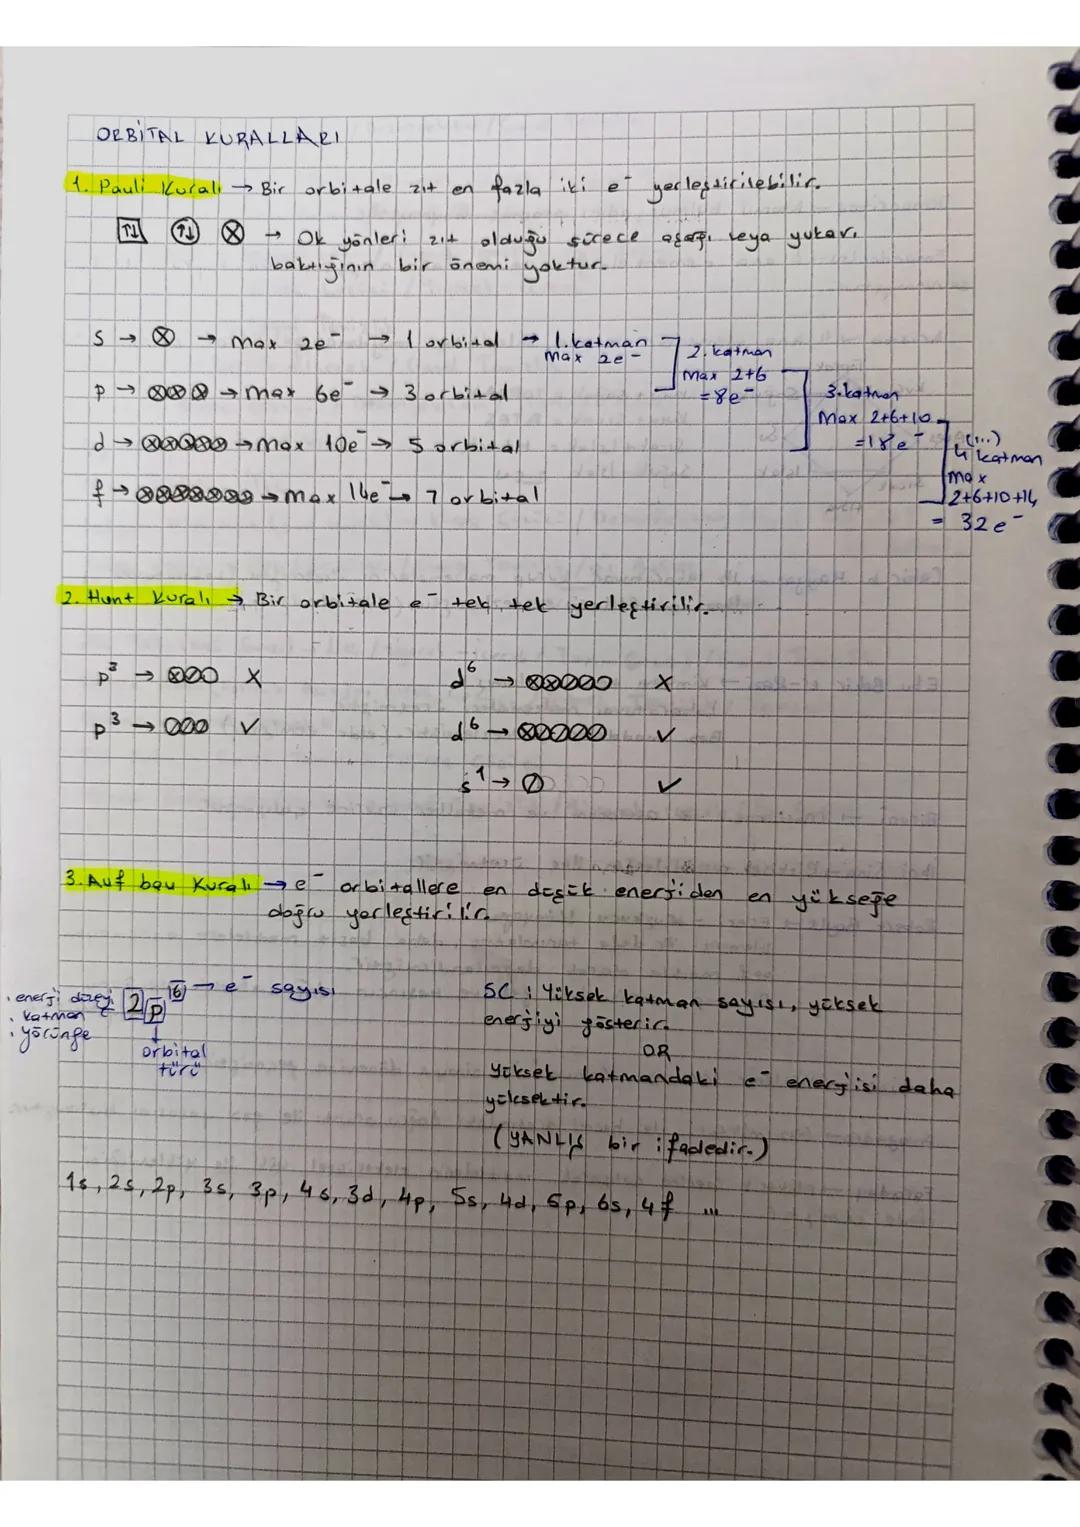 ORBİTAL KURALLARI
1. Pauli Kuralı → Bir orbitale zıt en fazla iki e⁻ yerleştirilebilir.
↑↓ ↑↓ ⊗ → Ok yönleri zıt olduğu sürece aşağı veya yukarı
baktığının bir önemi yoktur.
s → ⊗ → max 2e⁻ → 1 orbital → 1.katman
max 2e⁻
2. katman
max 2+6
=8e⁻
p → ⊗⊗⊗ → max 6e⁻ → 3 orbital
3.katman
Max 2+6+10
=18e⁻
d → ⊗⊗⊗⊗⊗ → max 10e⁻ → 5 orbital
(...)
4 katman
max
2+6+10+14
= 32e⁻
f → ⊗⊗⊗⊗⊗⊗⊗ → max 14e⁻ → 7 orbital
2. Hunt Kuralı → Bir orbitale e⁻ tek tek yerleştirilir.
p³ → ⊗⊘○ X
d⁶ → ⊗⊗⊘⊘○ X
p³ → ⊘⊘⊘ ✓
d⁶ → ⊗⊘⊘⊘⊘ ✓
s¹ → ⊘ ✓
3. Auf bau Kuralı → e⁻ orbitallere en düşük enerjiden en yükseğe
doğru yerleştirilir.
. enerji düzeyi
. katman
. yörünge
2p⁶ → e⁻ sayısı
orbital
türü
SC : Yüksek katman sayısı, yüksek
enerjiyi gösterir.
OR
Yüksek katmandaki e⁻ enerjisi daha
yüksektir.
(YANLIŞ bir ifadedir.)
1s, 2s, 2p, 3s, 3p, 4s, 3d, 4p, 5s, 4d, 5p, 6s, 4f ...